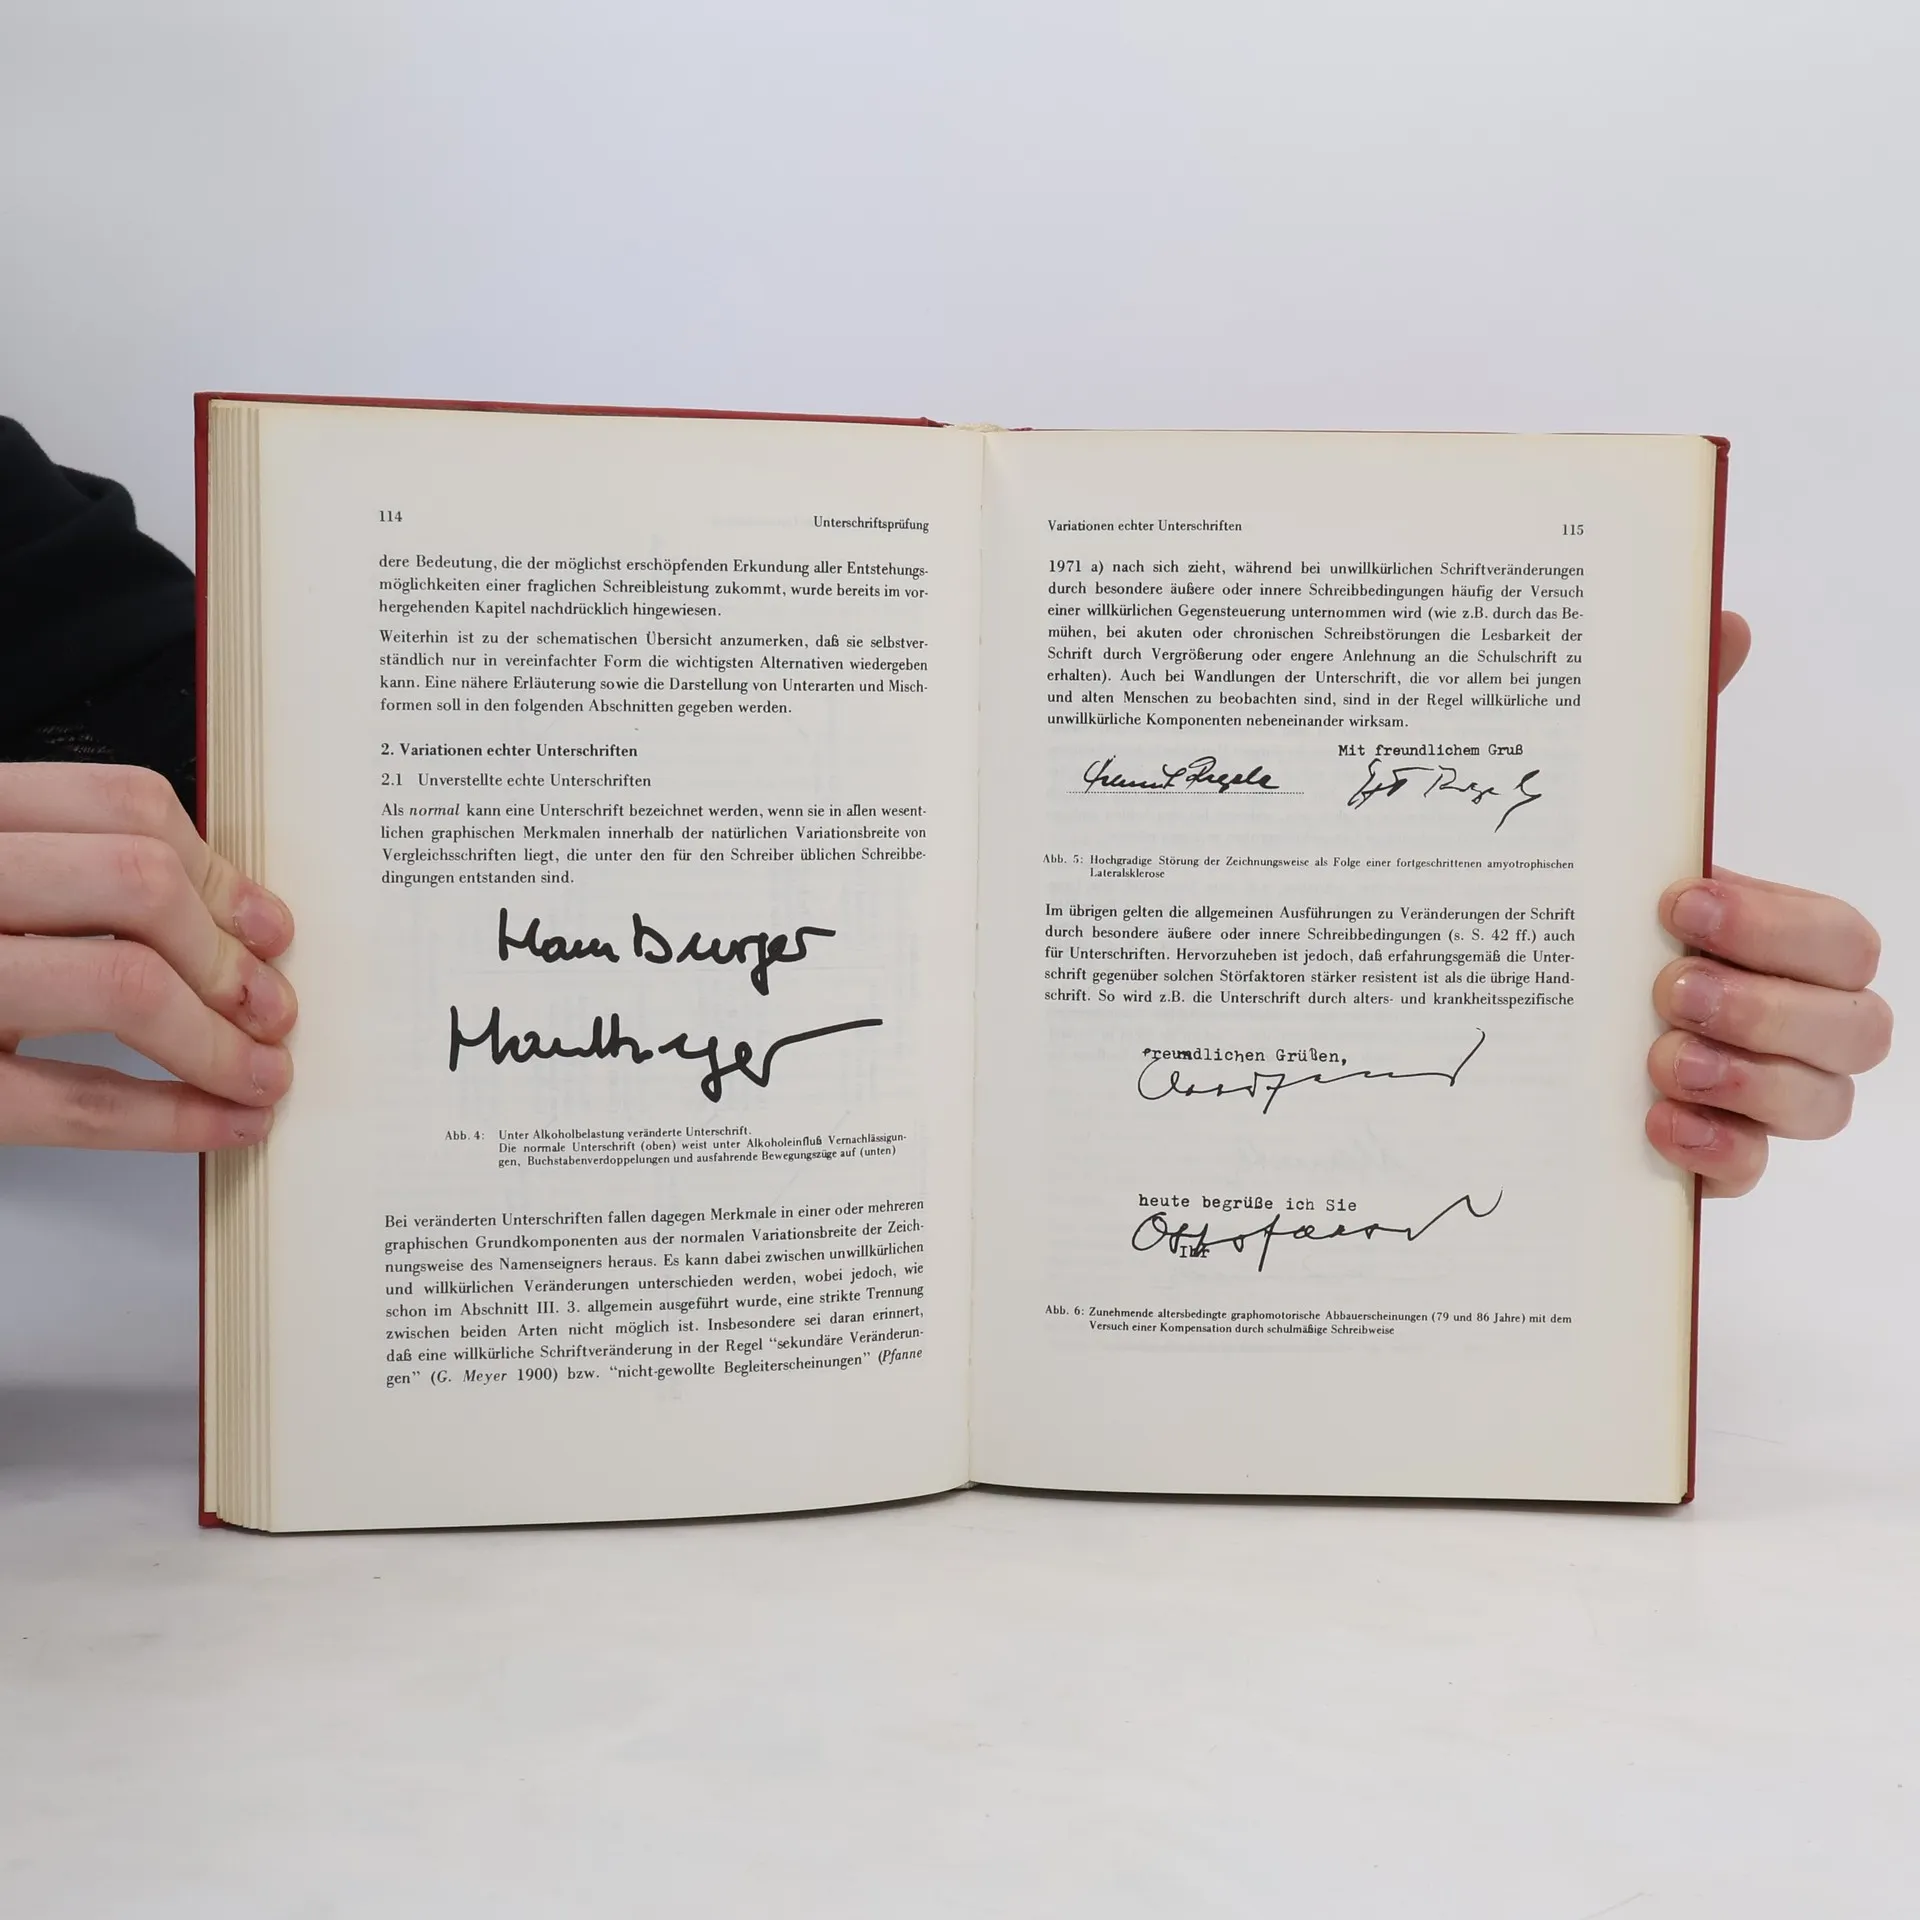 114
Unterschriftsprüfung
dere Bedeutung, die der möglichst erschöpfenden Erkundung aller Entstehungs-
möglichkeiten einer fraglichen Schreibleistung zukommt, wurde bereits im vor-
hergehenden Kapitel nachdrücklich hingewiesen.
Weiterhin ist zu der schematischen Übersicht anzumerken, daß sie selbstver-
ständlich nur in vereinfachter Form die wichtigsten Alternativen wiedergeben
kann. Eine nähere Erläuterung sowie die Darstellung von Unterarten und Misch-
formen soll in den folgenden Abschnitten gegeben werden.
2. Variationen echter Unterschriften
2.1 Unverstellte echte Unterschriften
Als normal kann eine Unterschrift bezeichnet werden, wenn sie in allen wesent-
lichen graphischen Merkmalen innerhalb der natürlichen Variationsbreite von
Vergleichsschriften liegt, die unter den für den Schreiber üblichen Schreibbe-
dingungen entstanden sind.
Abb. 4: Unter Alkoholbelastung veränderte Unterschrift.
Die normale Unterschrift (oben) weist unter Alkoholeinfluß Vernachlässigun-
gen, Buchstabenverdoppelungen und ausfahrende Bewegungszüge auf (unten)
Bei veränderten Unterschriften fallen dagegen Merkmale in einer oder mehreren
graphischen Grundkomponenten aus der normalen Variationsbreite der Zeich-
nungsweise des Namenseigners heraus. Es kann dabei zwischen unwillkürlichen
und willkürlichen Veränderungen unterschieden werden, wobei jedoch, wie
schon im Abschnitt III. 3. allgemein ausgeführt wurde, eine strikte Trennung
zwischen beiden Arten nicht möglich ist. Insbesondere sei daran erinnert,
daß eine willkürliche Schriftveränderung in der Regel “sekundäre Veränderun-
gen” (G. Meyer 1900) bzw. “nicht-gewollte Begleiterscheinungen” (Pfanne
Variationen echter Unterschriften
115
1971 a) nach sich zieht, während bei unwillkürlichen Schriftveränderungen
durch besondere äußere oder innere Schreibbedingungen häufig der Versuch
einer willkürlichen Gegensteuerung unternommen wird (wie z.B. durch das Be-
mühen, bei akuten oder chronischen Schreibstörungen die Lesbarkeit der
Schrift durch Vergrößerung oder engere Anlehnung an die Schulschrift zu
erhalten). Auch bei Wandlungen der Unterschrift, die vor allem bei jungen
und alten Menschen zu beobachten sind, sind in der Regel willkürliche und
unwillkürliche Komponenten nebeneinander wirksam.
Mit freundlichem Gruß
Abb. 5: Hochgradige Störung der Zeichnungsweise als Folge einer fortgeschrittenen amyotrophischen
Lateralsklerose
Im übrigen gelten die allgemeinen Ausführungen zu Veränderungen der Schrift
durch besondere äußere oder innere Schreibbedingungen (s. S. 42 ff.) auch
für Unterschriften. Hervorzuheben ist jedoch, daß erfahrungsgemäß die Unter-
schrift gegenüber solchen Störfaktoren stärker resistent ist als die übrige Hand-
schrift. So wird z.B. die Unterschrift durch alters- und krankheitsspezifische
freundlichen Grüßen,
heute begrüße ich Sie
Ihr
Abb. 6: Zunehmende altersbedingte graphomotorische Abbauerscheinungen (79 und 86 Jahre) mit dem
Versuch einer Kompensation durch schulmäßige Schreibweise